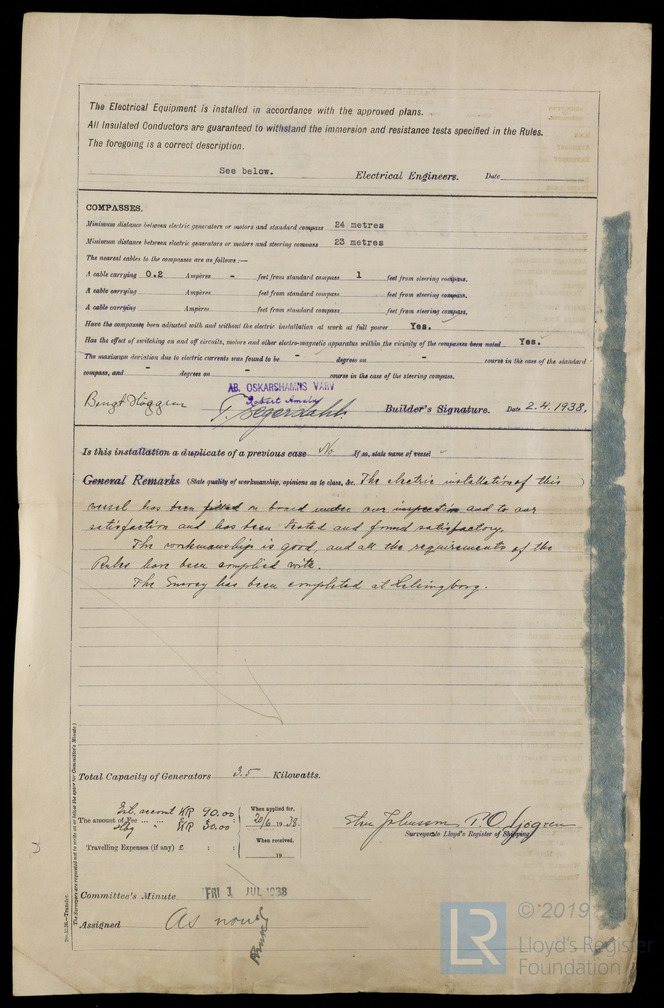 The Electrical Equipment is installed in accordance with the approved plans.
All Insulated Conductors are guaranteed to withstand the immersion and resistance tests specified in the Rules.
The foregoing is a correct description.
See below. Electrical Engineers. Date
COMPASSES.
Minimum distance between electric generators or motors and standard compass 24 metres
Minimum distance between electric generators or motors and steering compass 23 metres
The nearest cables to the compasses are as follows:—
A cable carrying 0.2 Ampères - feet from standard compass 1 feet from steering compass.
A cable carrying Ampères feet from standard compass feet from steering compass.
A cable carrying Ampères feet from standard compass feet from steering compass.
Have the compasses been adjusted with and without the electric installation at work at full power Yes.
Has the effect of switching on and off circuits, motors and other electro-magnetic apparatus within the vicinity of the compasses been noted Yes.
The maximum deviation due to electric currents was found to be - degrees on - course in the case of the standard
compass, and - degrees on - course in the case of the steering compass.
AB. OSKARSHAMNS VARV
Bengt Höggren T. Segerdahl. Builder's Signature. Date 2.4.1938.
Is this installation a duplicate of a previous case No If so, state name of vessel -
General Remarks (State quality of workmanship, opinions as to class, &c. The electric installation of this
vessel has been fitted on board under our inspection and to our
satisfaction and has been tested and found satisfactory.
The workmanship is good, and all the requirements of the
Rules have been complied with.
The Survey has been completed at Helsingborg.
Total Capacity of Generators 3.5 Kilowatts.
account KR 90.00
The amount of Fee ... ... Hbg " KR 30.00
When applied for,
20/6 1938
When received,
19
Travelling Expenses (if any) £ : :
Johnsson P.O. Sjögren
Surveyors to Lloyd's Register of Shipping
Committee's Minute FRI 1 JUL 1938
Assigned As noted
The Surveyors are requested not to write on or below the space for Committee's Minute.)
© 2019
LR
Lloyd's Register
Foundation